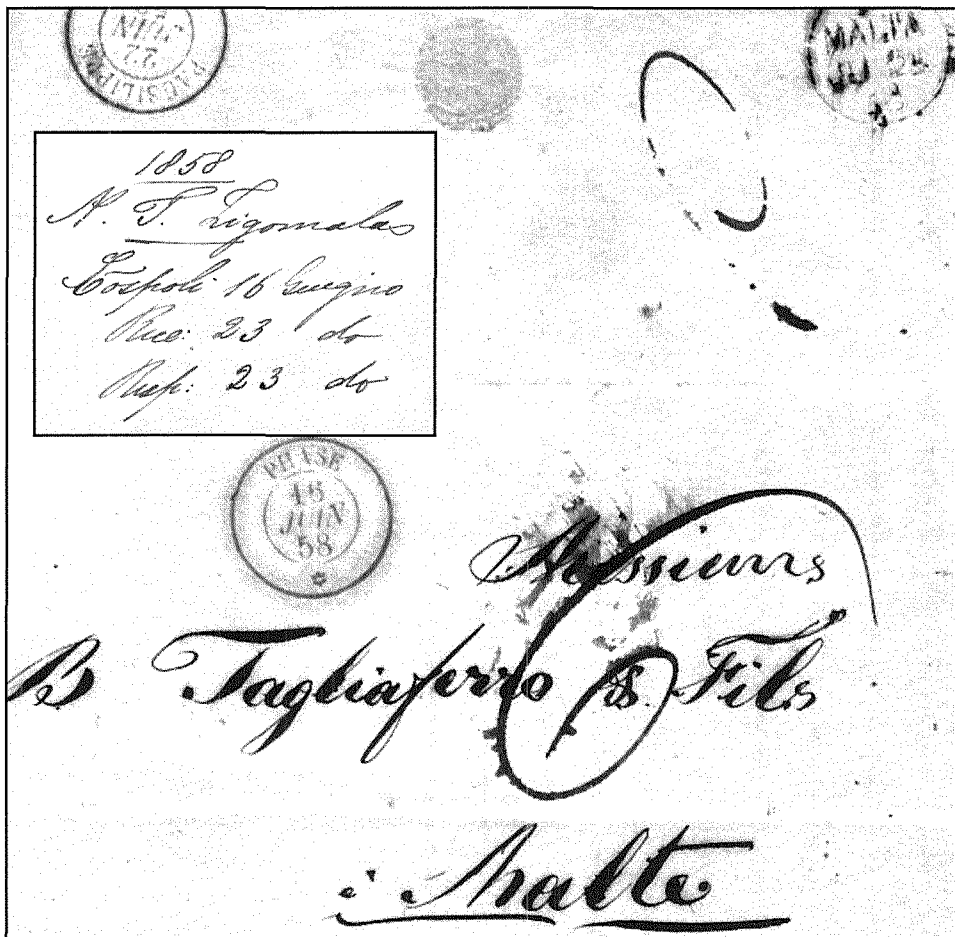 PAUSILIPPE
22
JUIN
MALTA
JU 23
1858
N. T. Ligomalas
Cospoli 16 Giugno
Rice: 23 do
Risp: 23 do
PHASE
16
JUIN
58
Messieurs
B Tagliaferro & Fils
à Malte